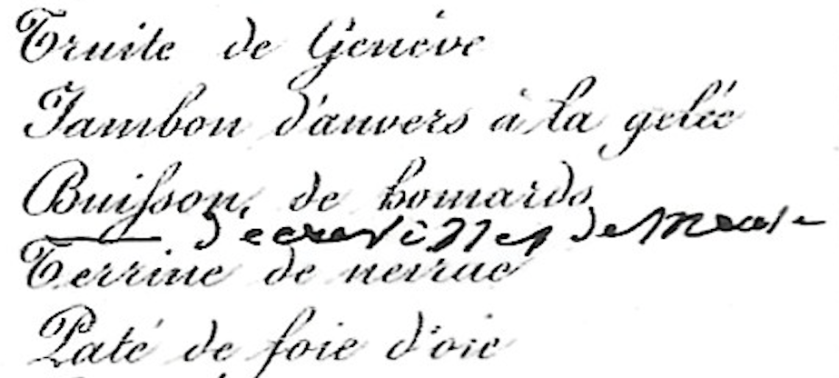 Truite de Genève
Jambon d'anvers à la gelée
Buisson de homards
— d'ecrevisses de Meuse
Terrine de nerrac
Paté de foie d'oie